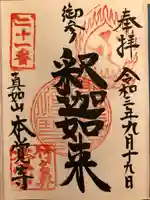 奉拝
令和三年九月十九日
御本尊
釈迦如来
二十一番
真如山
本覚寺